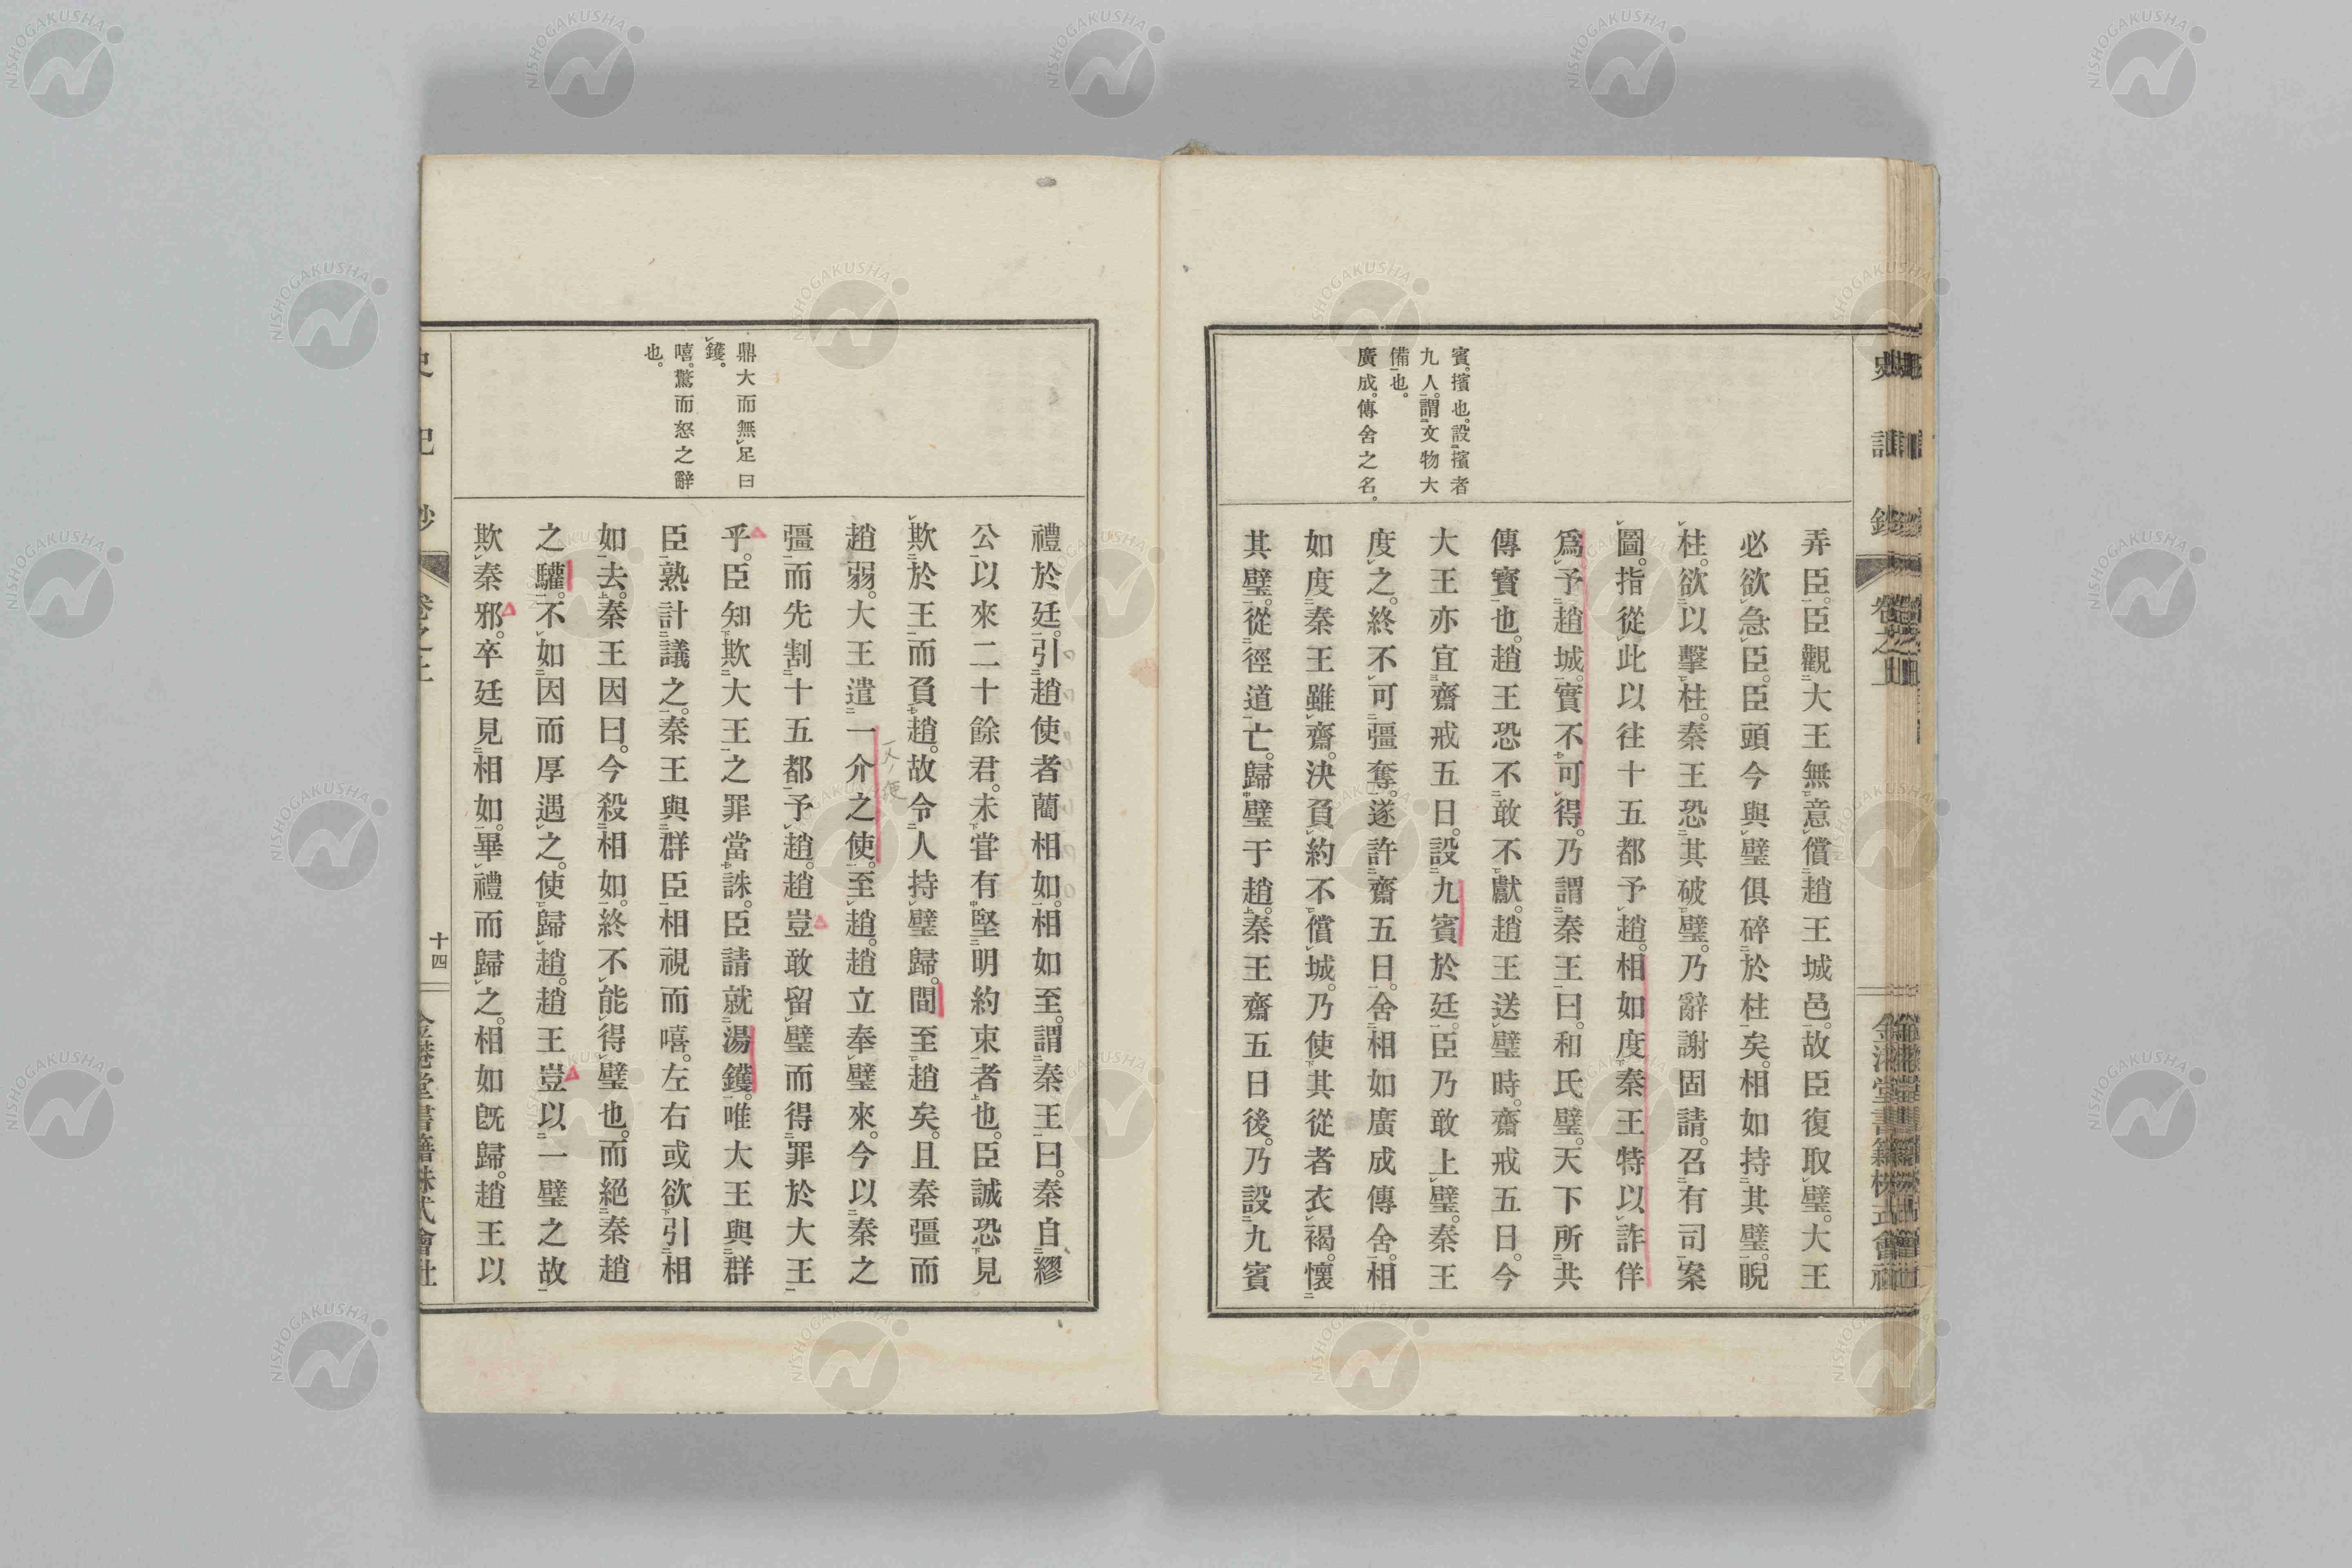 弄臣。臣觀大王無意償趙王城邑。故臣復取璧。大王
必欲急臣。臣頭今與璧俱碎於柱矣。相如持其璧。睨
柱。欲以擊柱。秦王恐其破璧。乃辭謝固請。召有司案
圖。指從此以往十五都予趙。相如度秦王特以詐佯
爲予趙城。實不可得。乃謂秦王曰。和氏璧。天下所共
傳寶也。趙王恐不敢不獻。趙王送璧時。齋戒五日。今
大王亦宜齋戒五日。設九賓於廷。臣乃敢上璧。秦王
度之。終不可彊奪。遂許齋五日。舍相如廣成傳舍。相
如度秦王雖齋。決負約不償城。乃使其從者衣褐。懷
其璧。從徑道亡。歸璧于趙。秦王齋五日後。乃設九賓
賓。擯也。設擯者
九人。謂文物大
備也。
廣成。傳舍之名。
禮於廷。引趙使者藺相如。相如至。謂秦王曰。秦自繆
公以來二十餘君。未甞有堅明約束者也。臣誠恐見
欺於王而負趙。故令人持璧歸。間至趙矣。且秦彊而
趙弱。大王遣一介之使。至趙。趙立奉璧來。今以秦之
彊而先割十五都予趙。趙豈敢留璧而得罪於大王
乎。臣知欺大王之罪當誅。臣請就湯鑊。唯大王與群
臣熟計議之。秦王與群臣相視而嘻。左右或欲引相
如去。秦王因曰。今殺相如。終不能得璧也。而絕秦趙
之驩。不如因而厚遇之。使歸趙。趙王豈以一璧之故
欺秦邪。卒廷見相如。畢禮而歸之。相如既歸。趙王以
鼎大而無足曰
鑊。
嘻。驚而怒之辭
也。
十四
NISHOGAKUSHA